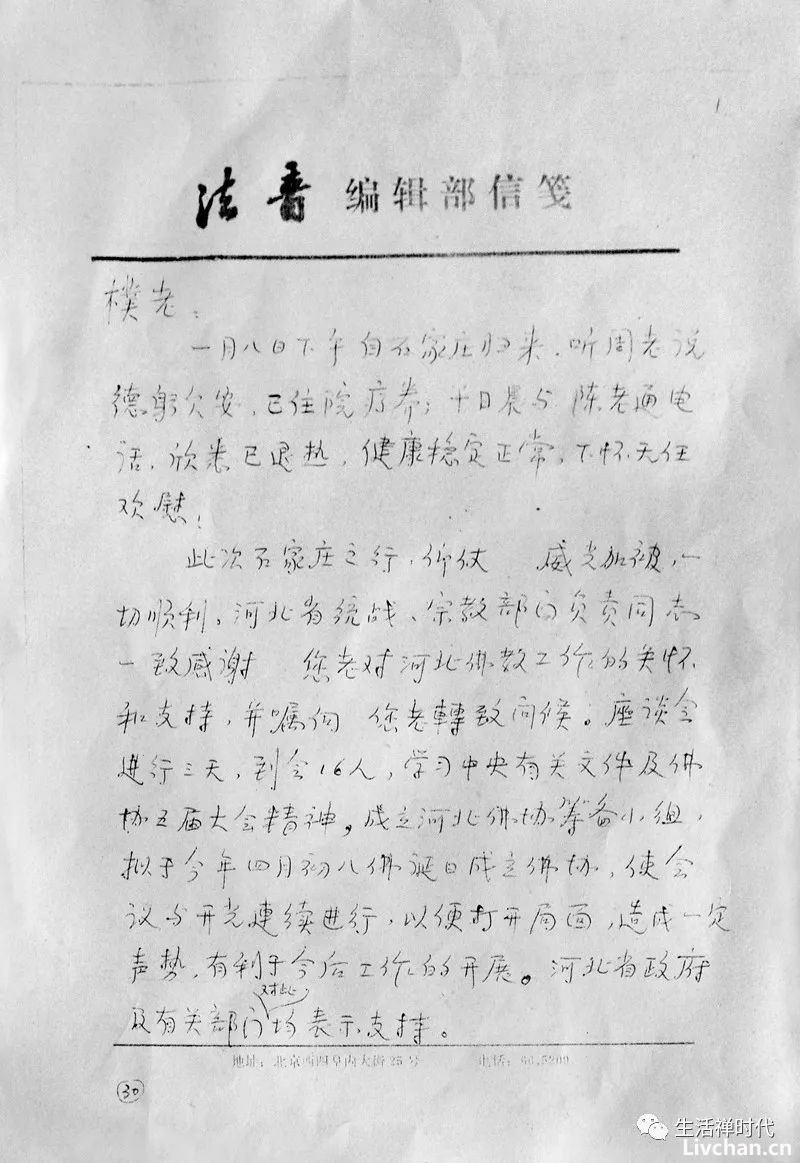 1
法音 编辑部信笺
樸老：
一月八日下午自石家庄归来，听周老说
德躬欠安，已住院疗养；十日晨与陈老通电
话，欣悉已退热，健康稳定正常，下怀无任
欢慰！
此次石家庄之行，仰仗 威光加被，一
切顺利。河北省统战、宗教部门负责同志
一致感谢 您老对河北佛教工作的关怀
和支持，并嘱向 您老轉致问候。座谈会
进行三天，到会16人，学习中央有关文件及佛
协五届大会精神，成立河北佛协筹备小组，
拟于今年四月初八佛诞日成立佛协，使会
议与开光連续进行，以便打开局面，造成一定
声势，有利于今后工作的开展。河北省政府
及有关部门对此均表示支持。
地址：北京西四阜内大街25号 电话：66.5209
30
生活禅时代
Livchan.cn